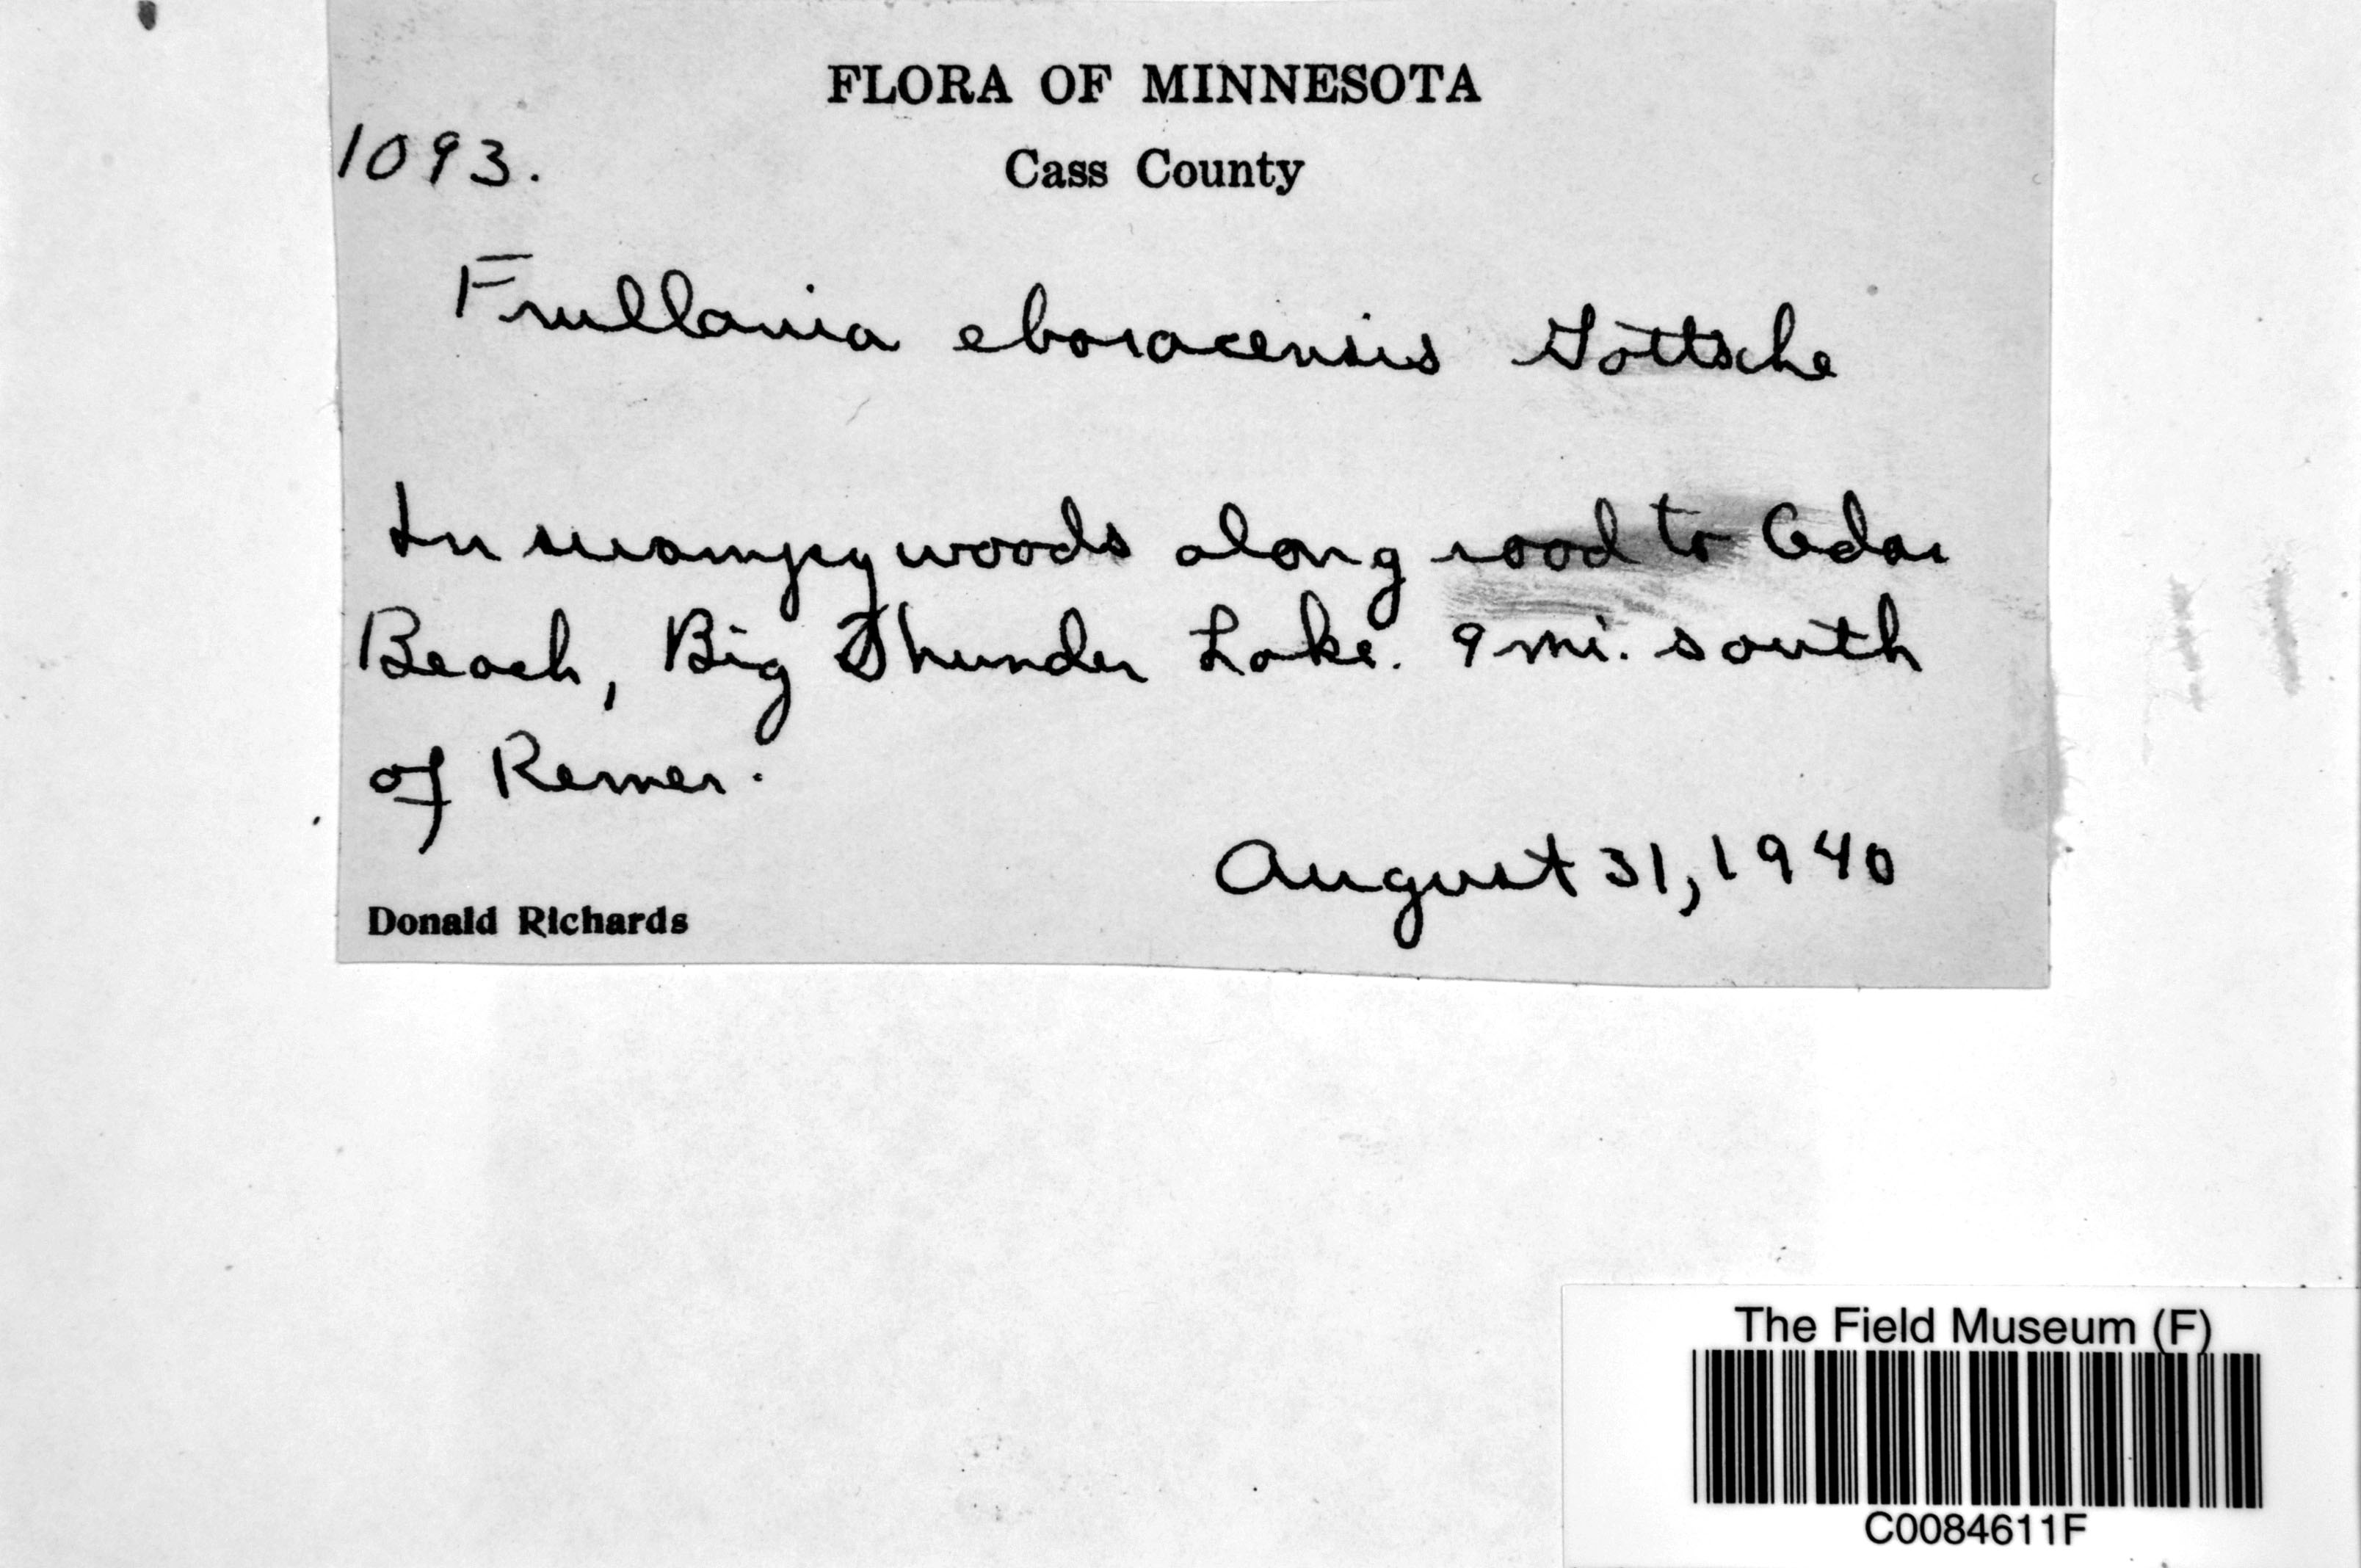 FLORA OF MINNESOTA
1093.
Cass County
Frullania eboracensis Gottsche
In swampy woods along road to Cedar
Beach, Big Thunder Lake. 9 mi. south
of Remer.
August 31, 1940
Donald Richards
The Field Museum (F)
C0084611F